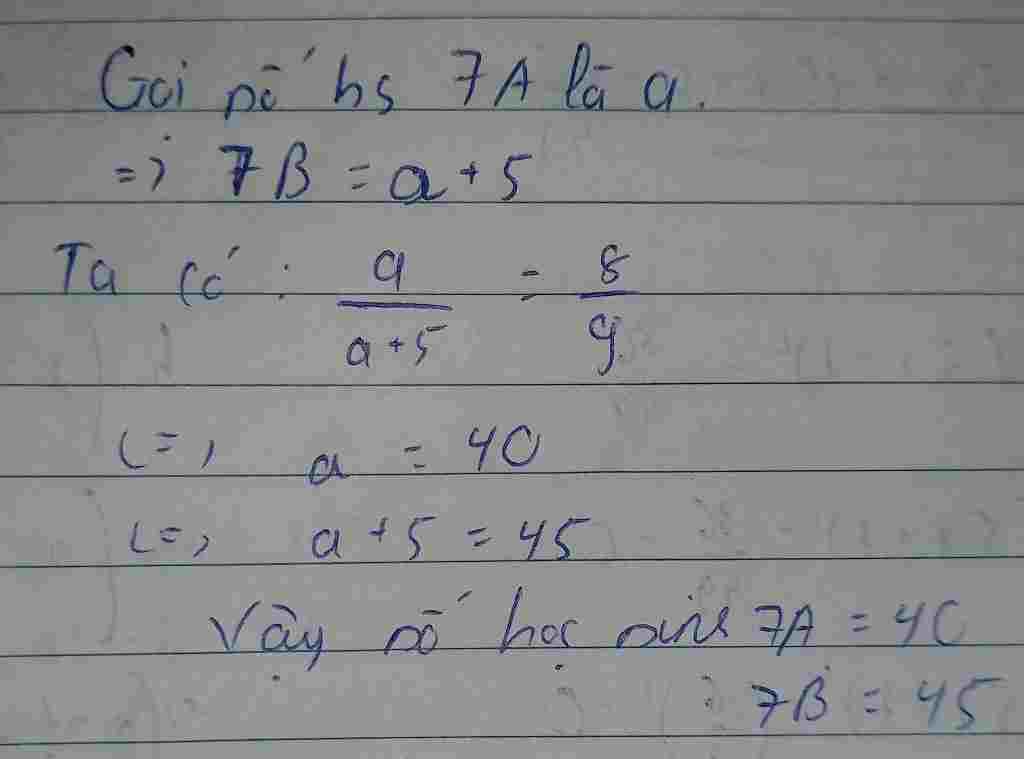 Gọi số hs 7A là a.
=> 7B = a + 5
Ta có : a / a + 5 = 8 / 9
<=> a = 40
<=> a + 5 = 45
Vậy số học sinh 7A = 40
7B = 45